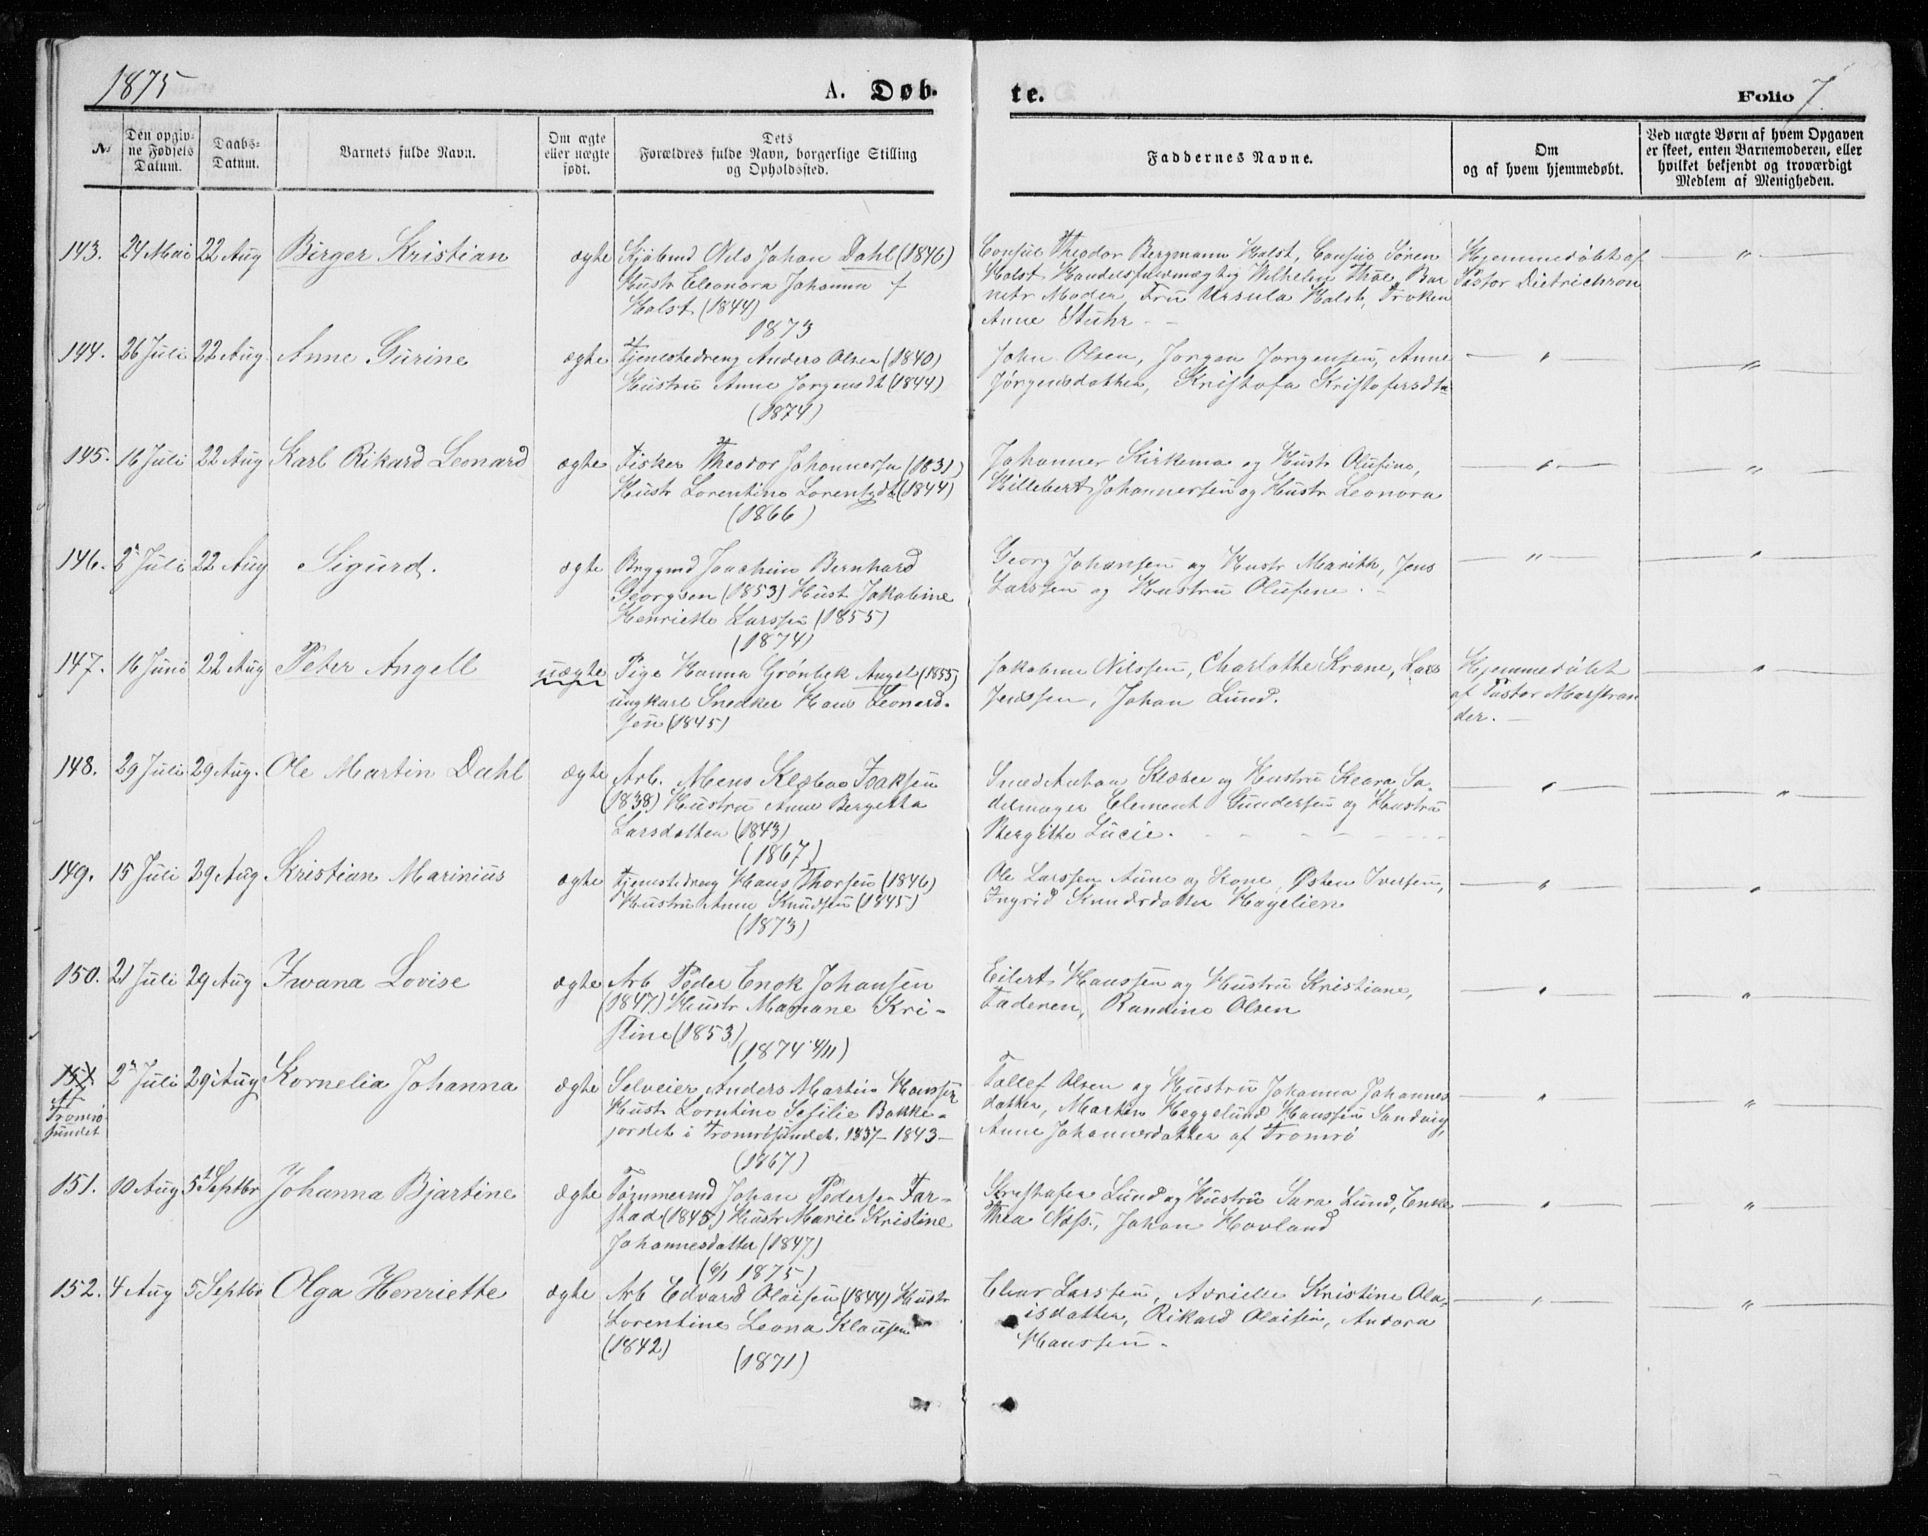 1875
A. Døb-
te.
Folio 7.
No
Den opgiv-
ne Fødsels
Datum.
Daabs-
Datum.
Barnets fulde Navn.
Om ægte
eller uægte
født.
Dets
Forældres fulde Navn, borgerlige Stilling
og Opholdssted.
Faddernes Navne.
Om
og af hvem hjemmedøbt.
Ved uægte Børn af hvem Opgaven
er skeet, enten Barnemoderen, eller
hvilket bekjendt og troværdigt
Medlem af Menigheden.
143. 24 Mai 22 Aug Birger Kristian ægte Kjøbmd Nils Johan Dahl (1846)
Hustr Eleonora Johanna f
Holst (1844)
1873
Consul Theodor Bergmann Holst, Consus Søren
Holst Handelsfuldmægtig Wilhelm Thoe, Bar
nets Moder, Fru Ursula Holst, Frøken
Anne Stuhr
Hjemmedøbt af
Pastor Dietrichson
"
144. 26 Juli 22 Aug. Anne Gurine ægte Tjenestedreng Anders Olsen (1840)
Hustru Anne Jørgensdt (1844)
(1874)
John Olsen, Jørgen Jørgensen, Anne
Jørgensdatter, Kristofa Kristofersdta
"
"
145. 16 Juli 22 Aug Karl Rikard Leonard ægte Fisker Theodor Johannesen (1831)
Hustr Lorentine Lorentzdt (1844)
(1866)
Johannes Kirkemo og Hustr Olufine,
Hillebert Johannessen og Hustr Leonora
"
"
146. 5 Juli 22 Aug Sigurd. ægte Brygmd Joachim Bernhard
Georgsen (1853) Hust Jakobine
Henriette Larssen (1855)
(1874)
Georg Johansen og Hustr Marith, Jens
Larssen og Hustru Olufine.
"
"
147. 16 Juni 22 Aug Peter Angell uægte Pige Hanna Grønbek Angel (1855)
ungkarl Snedker Hans Leonard-
sen (1845)
Jakobine Nilssen, Charlotte Krane, Lars
Jenssen, Johan Lund.
Hjemmedøbt
af Pastor Marstran
der.
"
148. 29 Juli 29 Aug. Ole Martin Dahl ægte Arb. Mons Klæboe Isaksen
(1838) Hustru Anne Bergetta
Larsdatter (1843)
(1867)
Smed Anton Klæboe og Hustru Keara, Sa-
delmager Clement Gundersen og Hustru
Bergitte Lucie.
"
"
149. 15 Juli 29 Aug Kristian Marinius ægte Tjenestedreng Hans Thorsen (1846)
Hustru Anne Knudsen (1845)
(1873)
Ole Larssen Aune og Kone, Østen Iversen,
Ingrid Knudsdatter Hagelien
"
"
150. 21 Juli 29 Aug Iwana Lovise ægte Arb Peder Enok Johansen
(1847) Hustr Mariane Kri-
stine (1853)
(1874 4/11)
Eilert Hanssen og Hustru Kristiane,
Faderen, Randine Olsen
"
"
151.
Af
Tromsø
sundet
2 Juli 29 Aug Kornelia Johanna ægte Selveier Anders Martin Hanssen
Hust Lorntine Sesilie Bakke-
jordet i Tromsøsundet. 1837 - 1843 -
(1867)
Tollef Olsen og Hustru Johanna Johannes
datter, Marten Heggelund Hanssen Sandvig,
Anne Johannesdatter af Tromsø
"
"
151. 10 Aug 5 Septbr Johanna Bjartine ægte Tømmermd Johan Pedersen Far-
stad (1845) Hustr Marie Kristine
Johannesdatter (1847)
(6/1 1875)
Kristofer Lund og Hustru Sara Lund, Enke
Thea Næss, Johan Hovland
"
"
152. 4 Aug 5 Septbr Olga Henriette ægte Arb Edvard Olaisen (1844) Hustr
Lorentine Leona Klausen
(1842)
(1871)
Elvar Larssen, Kristine Ola-
isdatter, Rikard Olaisen, Andora
Hanssen.
"
"